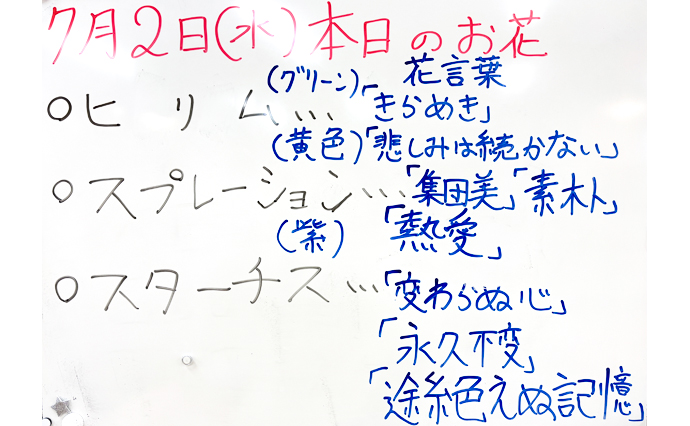 7月2日(水)本日のお花
花言葉
○ヒリム…(グリーン)「きらめき」
(黄色)「悲しみは続かない」
○スプレーション…「集団美」「素朴」
(紫)「熱愛」
○スターチス…「変わらぬ心」
「永久不変」
「途絶えぬ記憶」